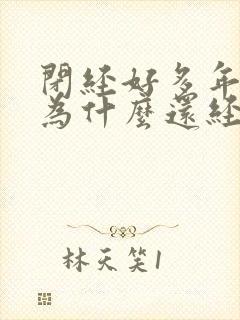 閉經好多年
為什麼還經
林天笑1